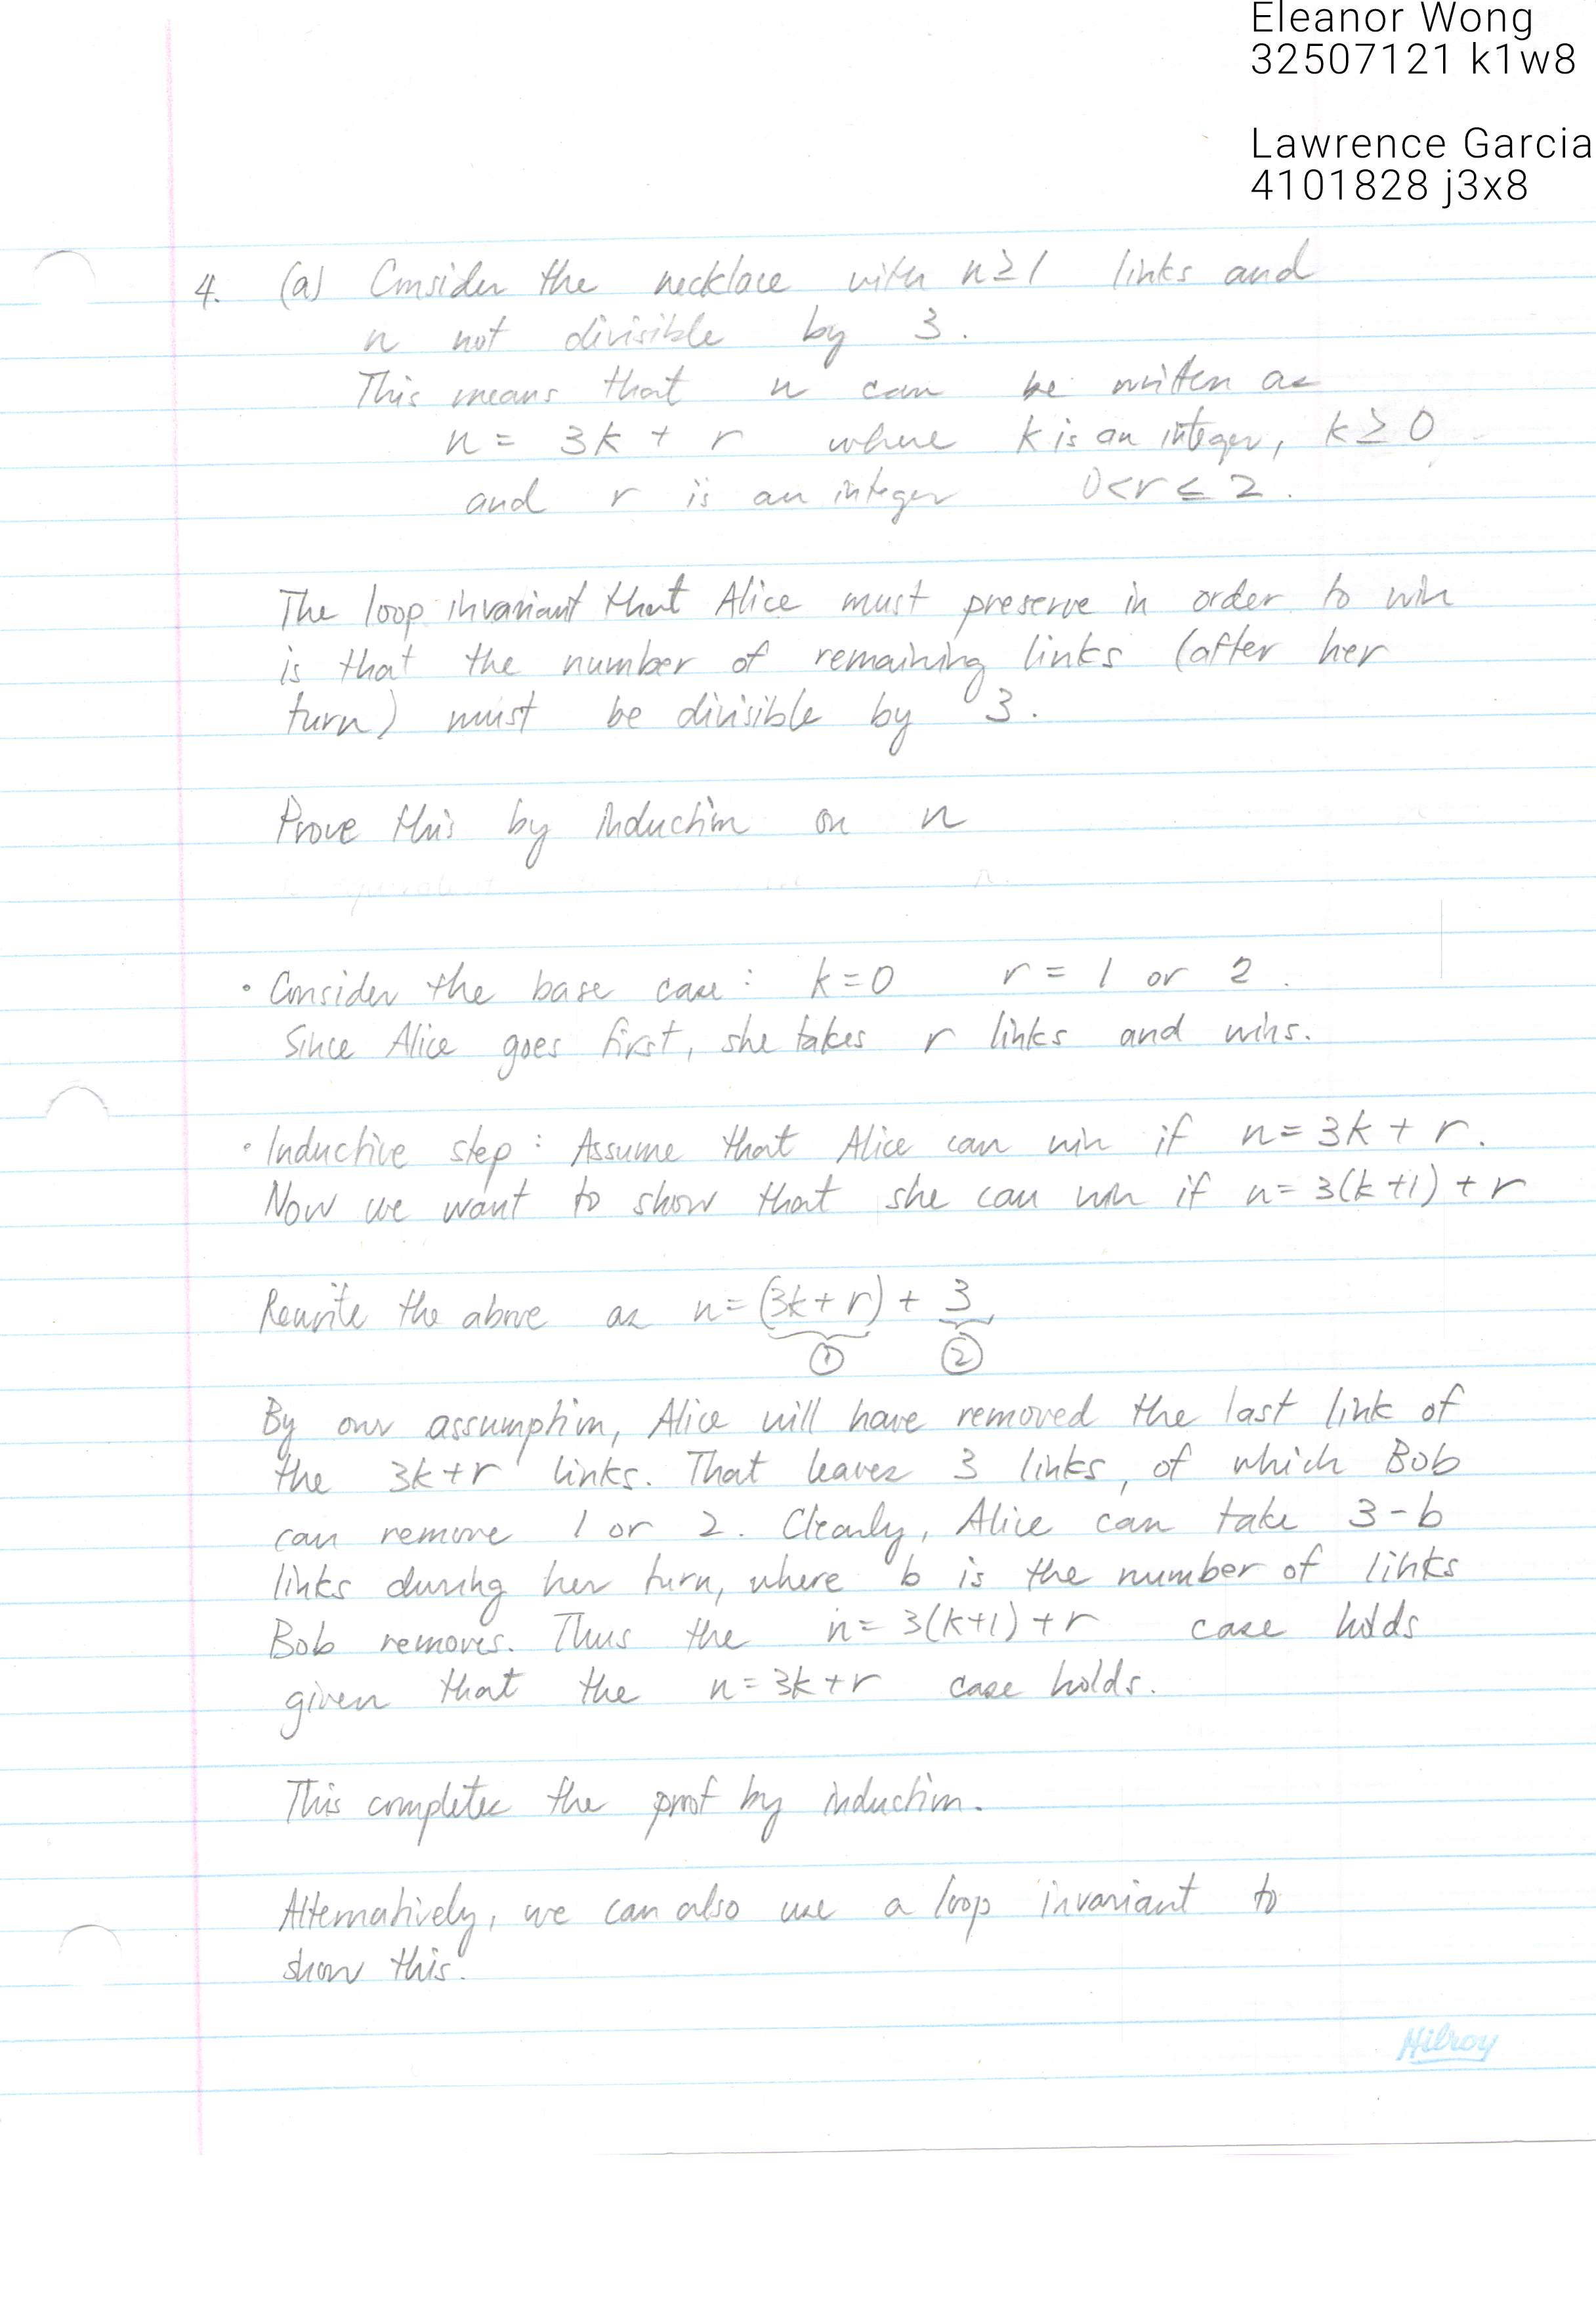 Eleanor Wong
32507121 k1w8
Lawrence Garcia
4101828 j3x8
4. (a) Consider the necklace with n≥1 links and
n not divisible by 3.
This means that n can be written as
n = 3k + r where k is an integer, k ≥ 0
and r is an integer 0<r≤2.
The loop invariant that Alice must preserve in order to win
is that the number of remaining links (after her
turn) must be divisible by 3.
Prove this by induction on n
• Consider the base case: k=0 r = 1 or 2.
Since Alice goes first, she takes r links and wins.
• Inductive step: Assume that Alice can win if n=3k+r.
Now we want to show that she can win if n=3(k+1)+r
Rewrite the above as n=(3k+r) + 3
① ②
By our assumption, Alice will have removed the last link of
the 3k+r links. That leaves 3 links, of which Bob
can remove 1 or 2. Clearly, Alice can take 3-b
links during her turn, where b is the number of links
Bob removes. Thus the n=3(k+1)+r case holds
given that the n=3k+r case holds.
This completes the proof by induction.
Alternatively, we can also use a loop invariant to
show this.
Hilroy